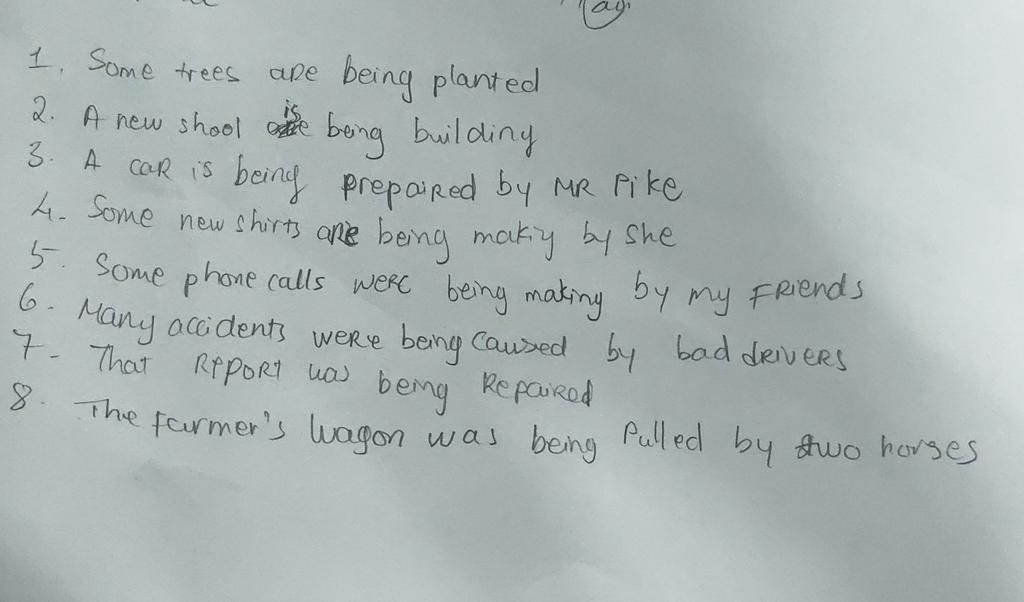 1. Some trees are being planted
2. A new shool is being building
3. A car is being prepaired by MR Pike
4- Some new shirts are being makiy by she
5. Some phone calls were being making by my FRiends
6- Many accidents were being Caused by bad drivers
7- That Report was being Repaired
8. The farmer's wagon was being Pulled by two horses